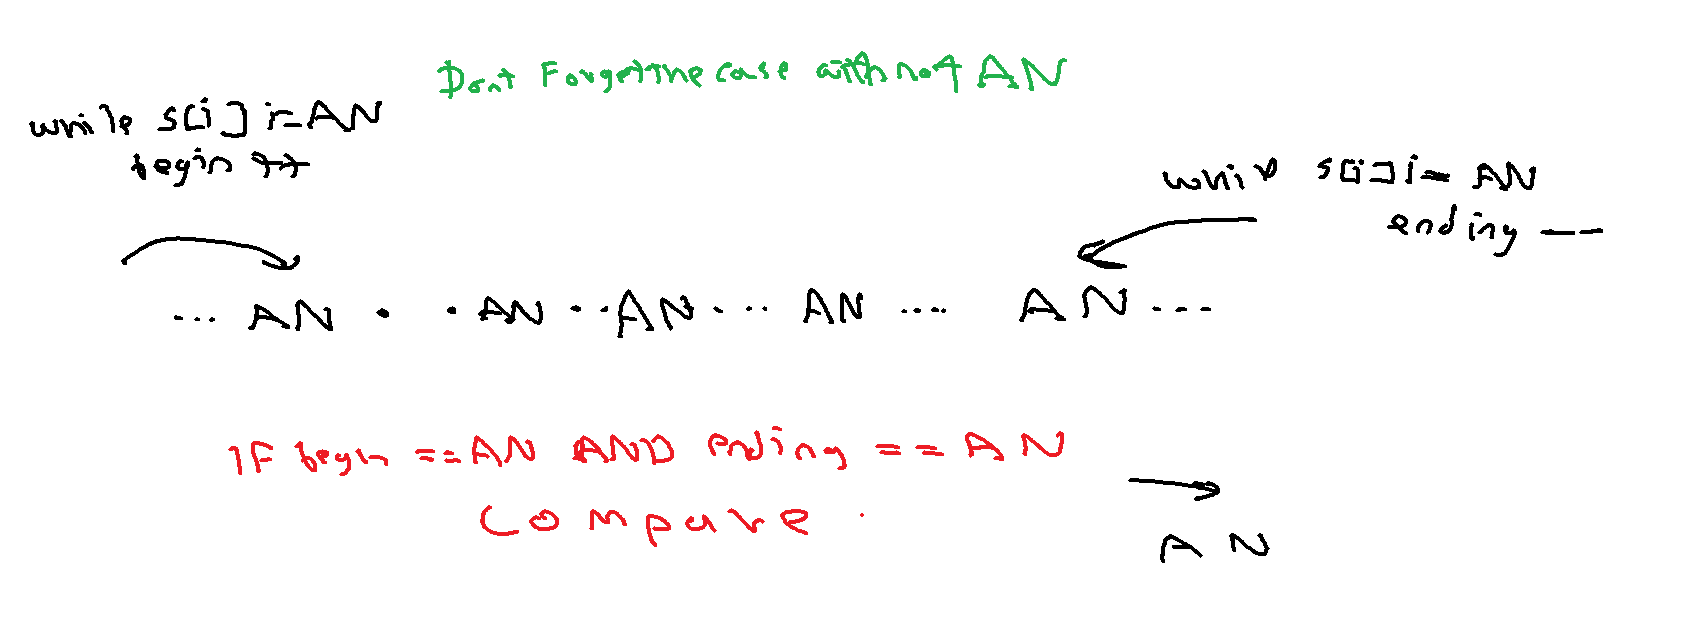 Dont Forget the case with not AN
while s[i] != AN
begin ++
while s[i] != AN
ending --
... AN . . AN .. AN ... AN .... AN ...
IF begin == AN AND ending == AN
compare .
AN